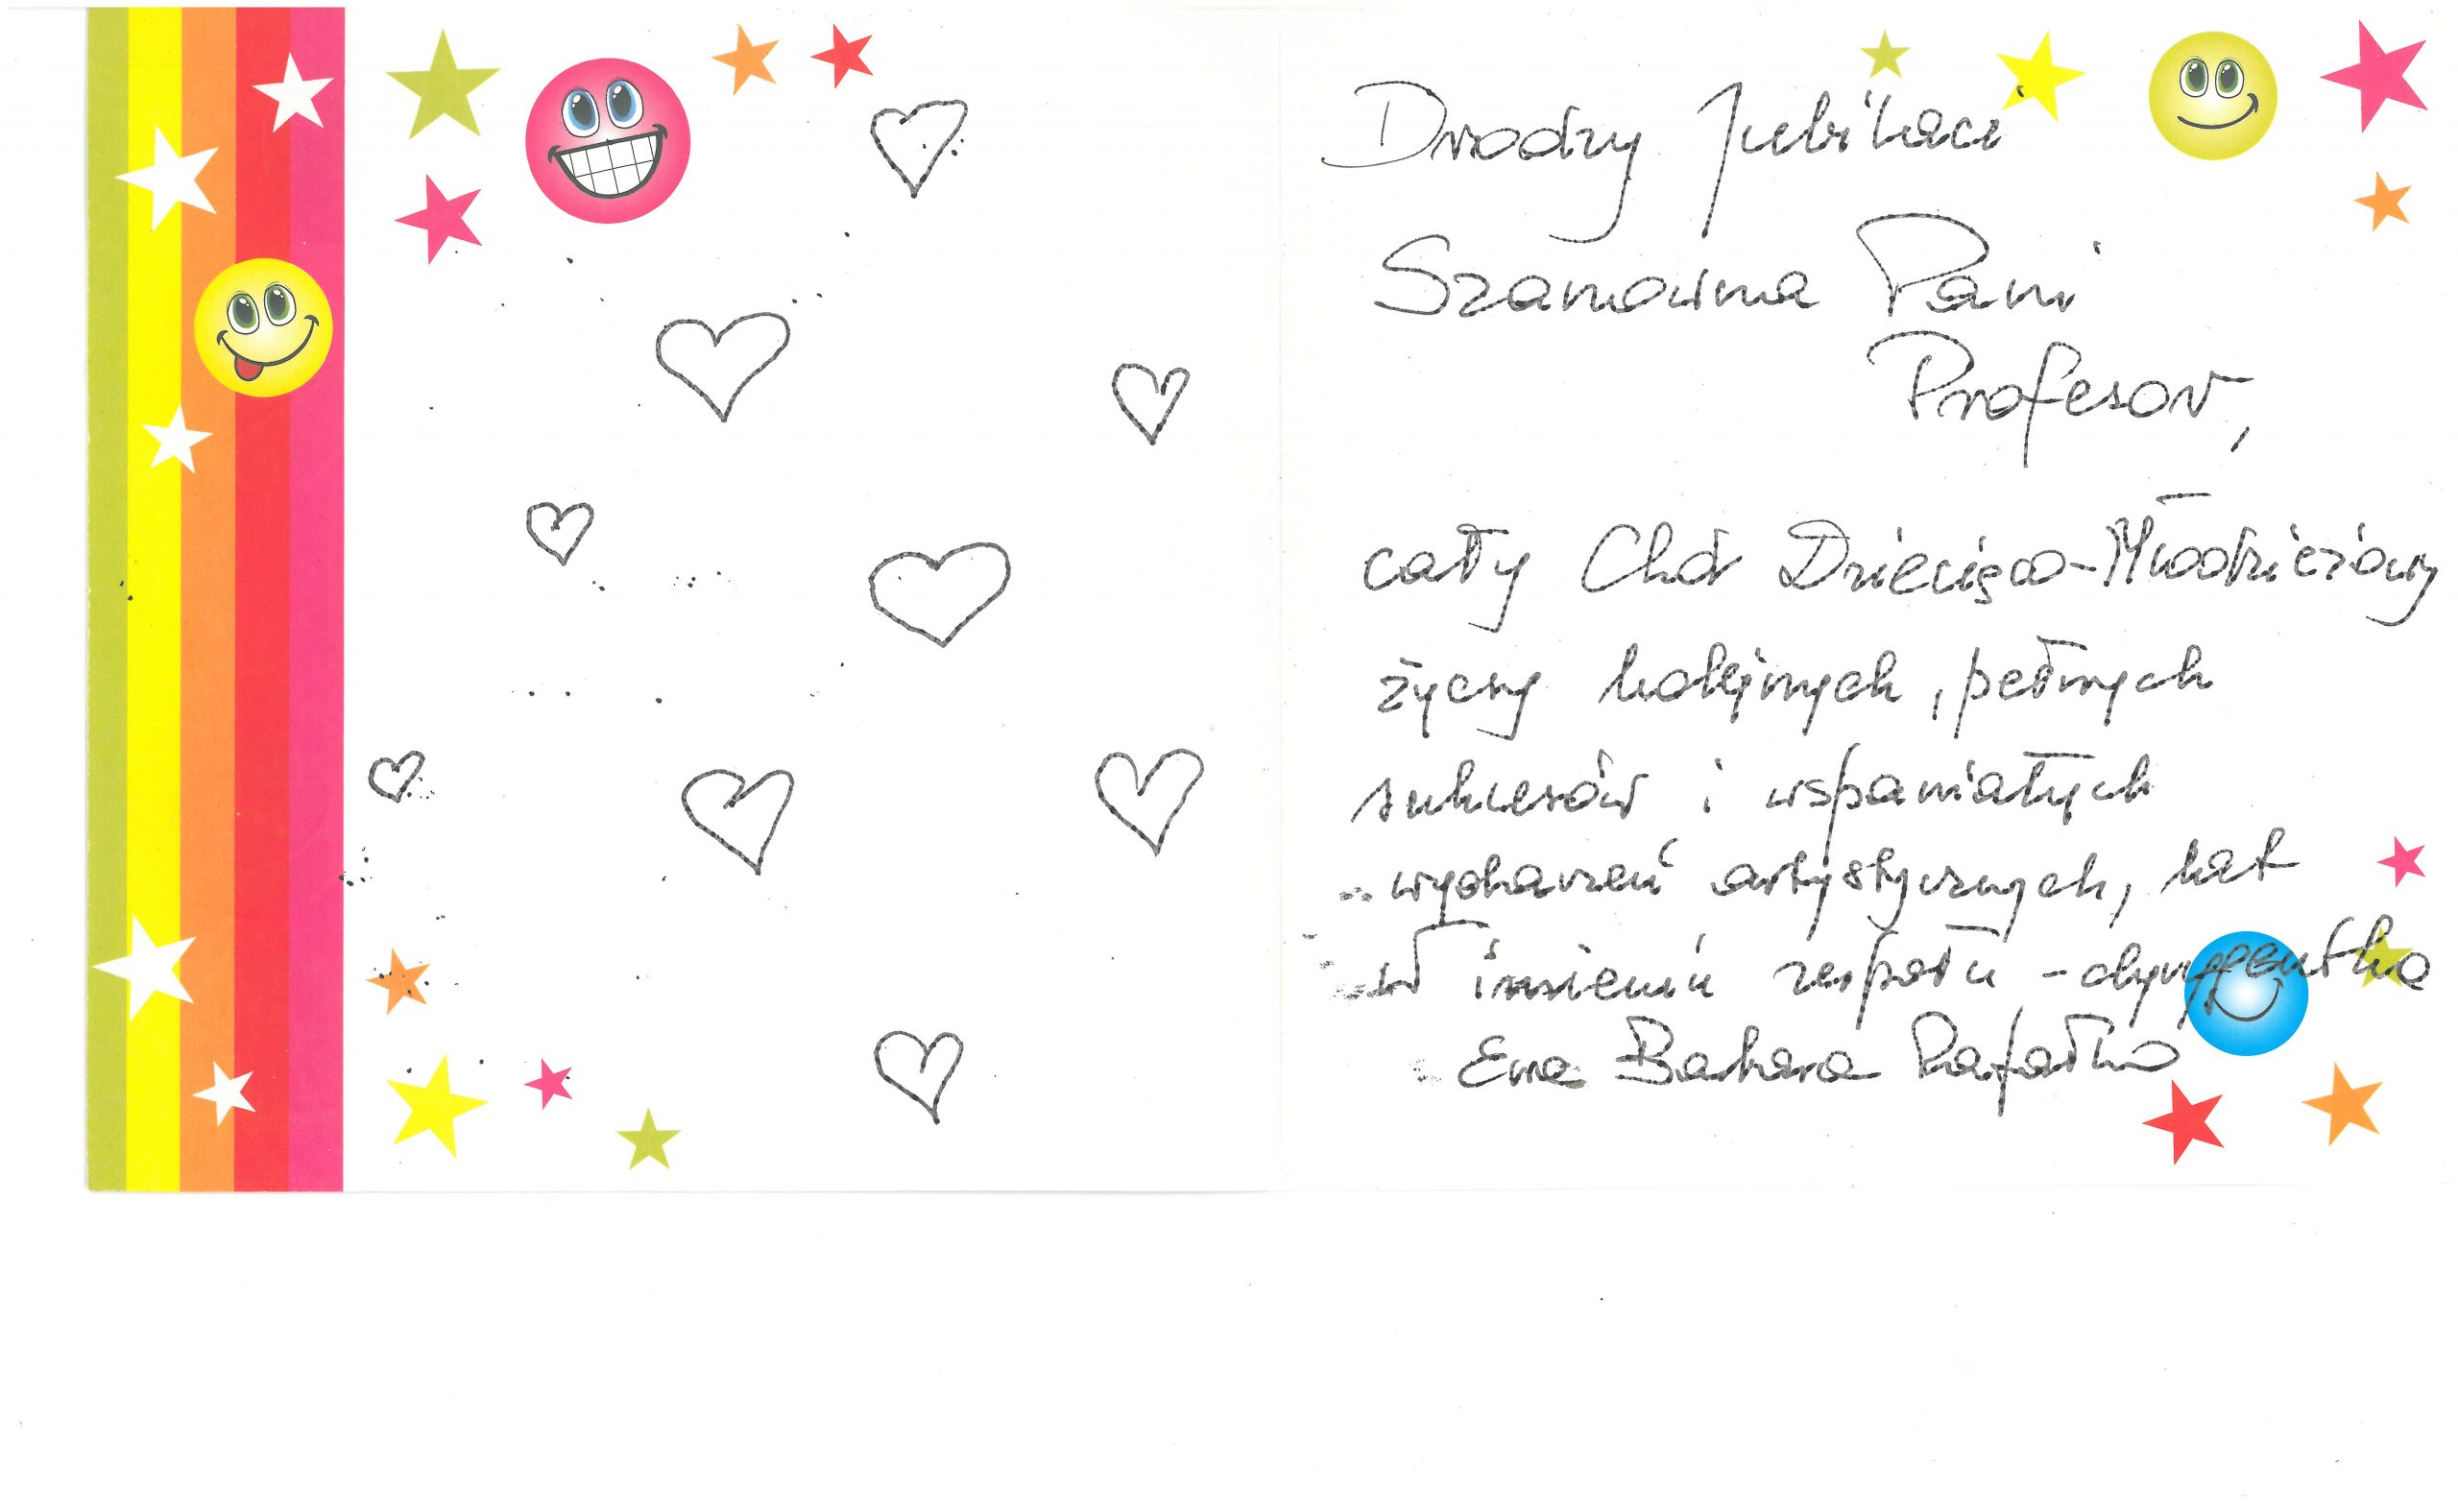 Drodzy Jubilaci
Szanowna Pani
Profesor,
cały Chór Dziecięco-Młodzieżowy
życzy kolejnych, pełnych
sukcesów i wspaniałych
wydarzeń artystycznych, lat
W imieniu zespołu - dyrygentka
Ewa Barbara Rafałko